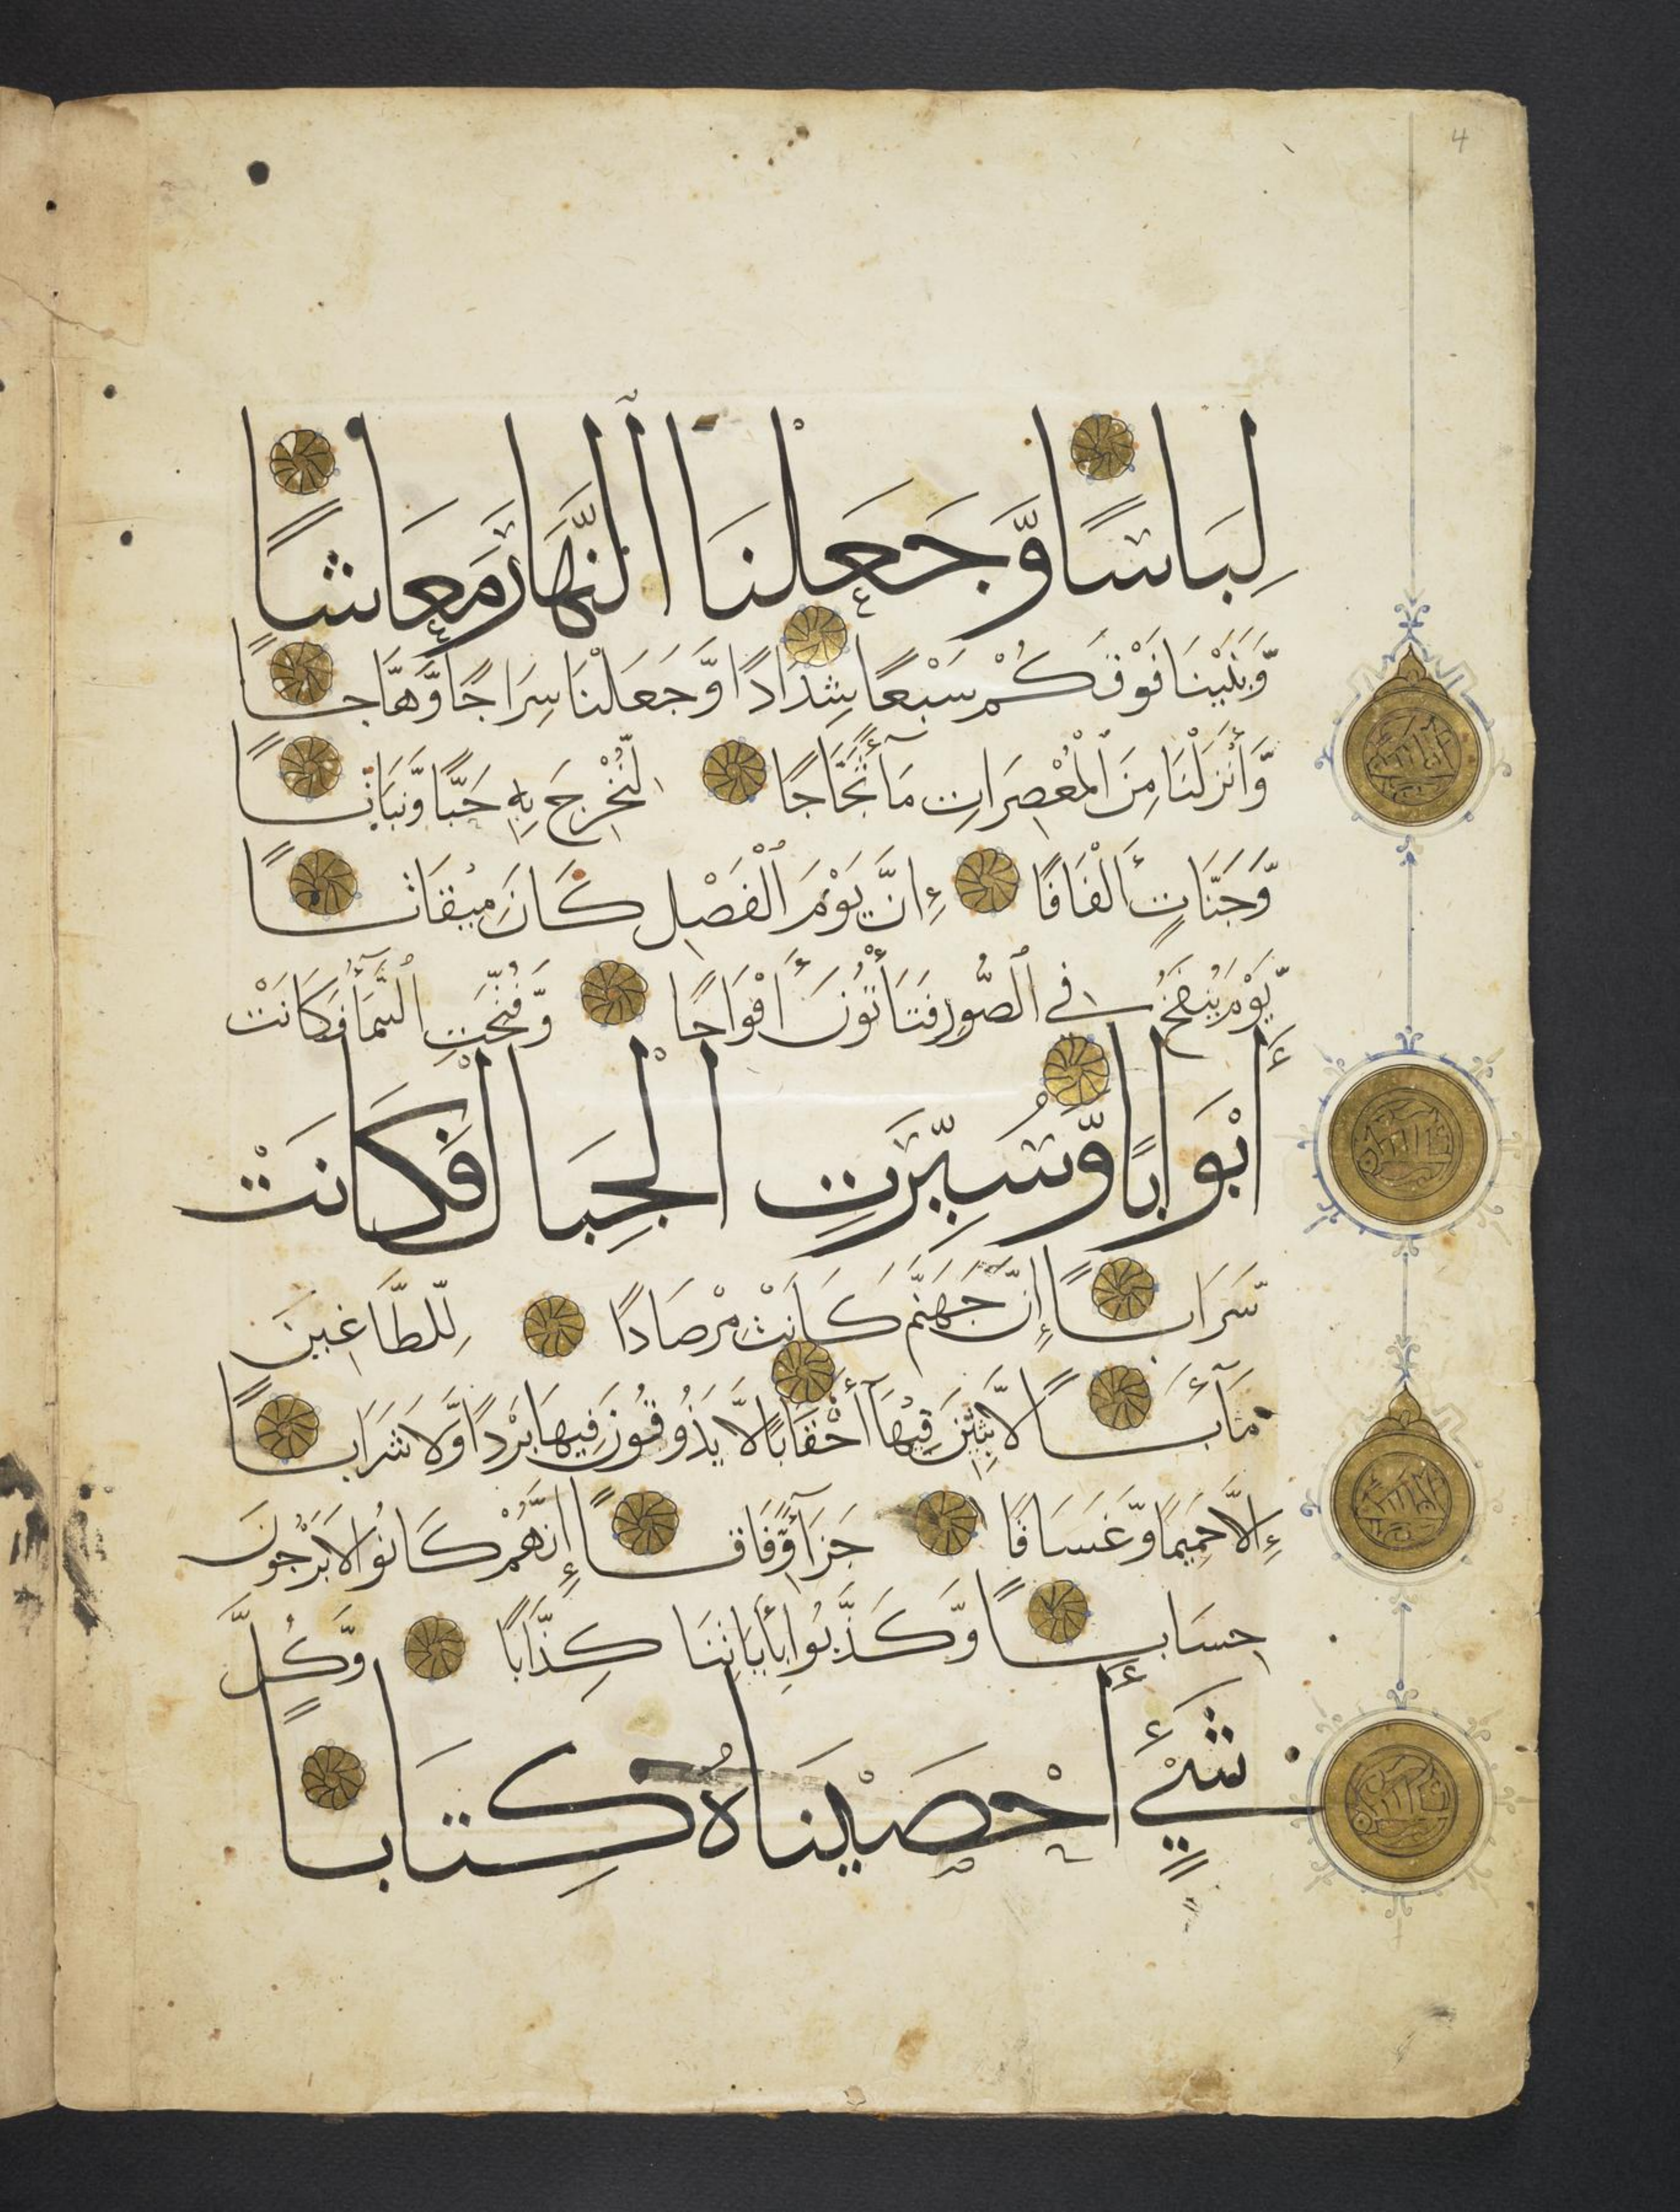 لِبَاسًا وَّجَعَلْنَا ٱلنَّهَارَ مَعَاشًا
وَّبَنَيْنَا فَوْقَكُمْ سَبْعًا شِدَادًا وَّجَعَلْنَا سِرَاجًا وَّهَّاجًا
وَّأَنْزَلْنَا مِنَ ٱلْمُعْصِرَاتِ مَآءً ثَجَّاجًا لِّنُخْرِجَ بِهِ حَبًّا وَّنَبَاتًا
وَّجَنَّاتٍ أَلْفَافًا إِنَّ يَوْمَ ٱلْفَصْلِ كَانَ مِيْقَاتًا
يَّوْمَ يُنْفَخُ فِي ٱلصُّورِ فَتَأْتُوْنَ أَفْوَاجًا وَّفُتِحَتِ ٱلسَّمَآءُ فَكَانَتْ
أَبْوَابًا وَّسُيِّرَتِ الْجِبَالُ فَكَانَتْ
سَّرَابًا إِنَّ جَهَنَّمَ كَانَتْ مِرْصَادًا لِّلطَّاغِينَ
مَآبًا لَّابِثِينَ فِيْهَآ أَحْقَابًا لَّا يَذُوقُونَ فِيهَا بَرْدًا وَّلَا شَرَابًا
إِلَّا حَمِيمًا وَّغَسَاقًا جَزَآءً وِّفَاقًا إِنَّهُمْ كَانُوا لَا يَرْجُونَ
حِسَابًا وَّكَذَّبُوا بِأَيَاتِنَا كِذَّابًا وَّكُلَّ
شَيْءٍ أَحْصَيْنَاهُ كِتَابًا
4